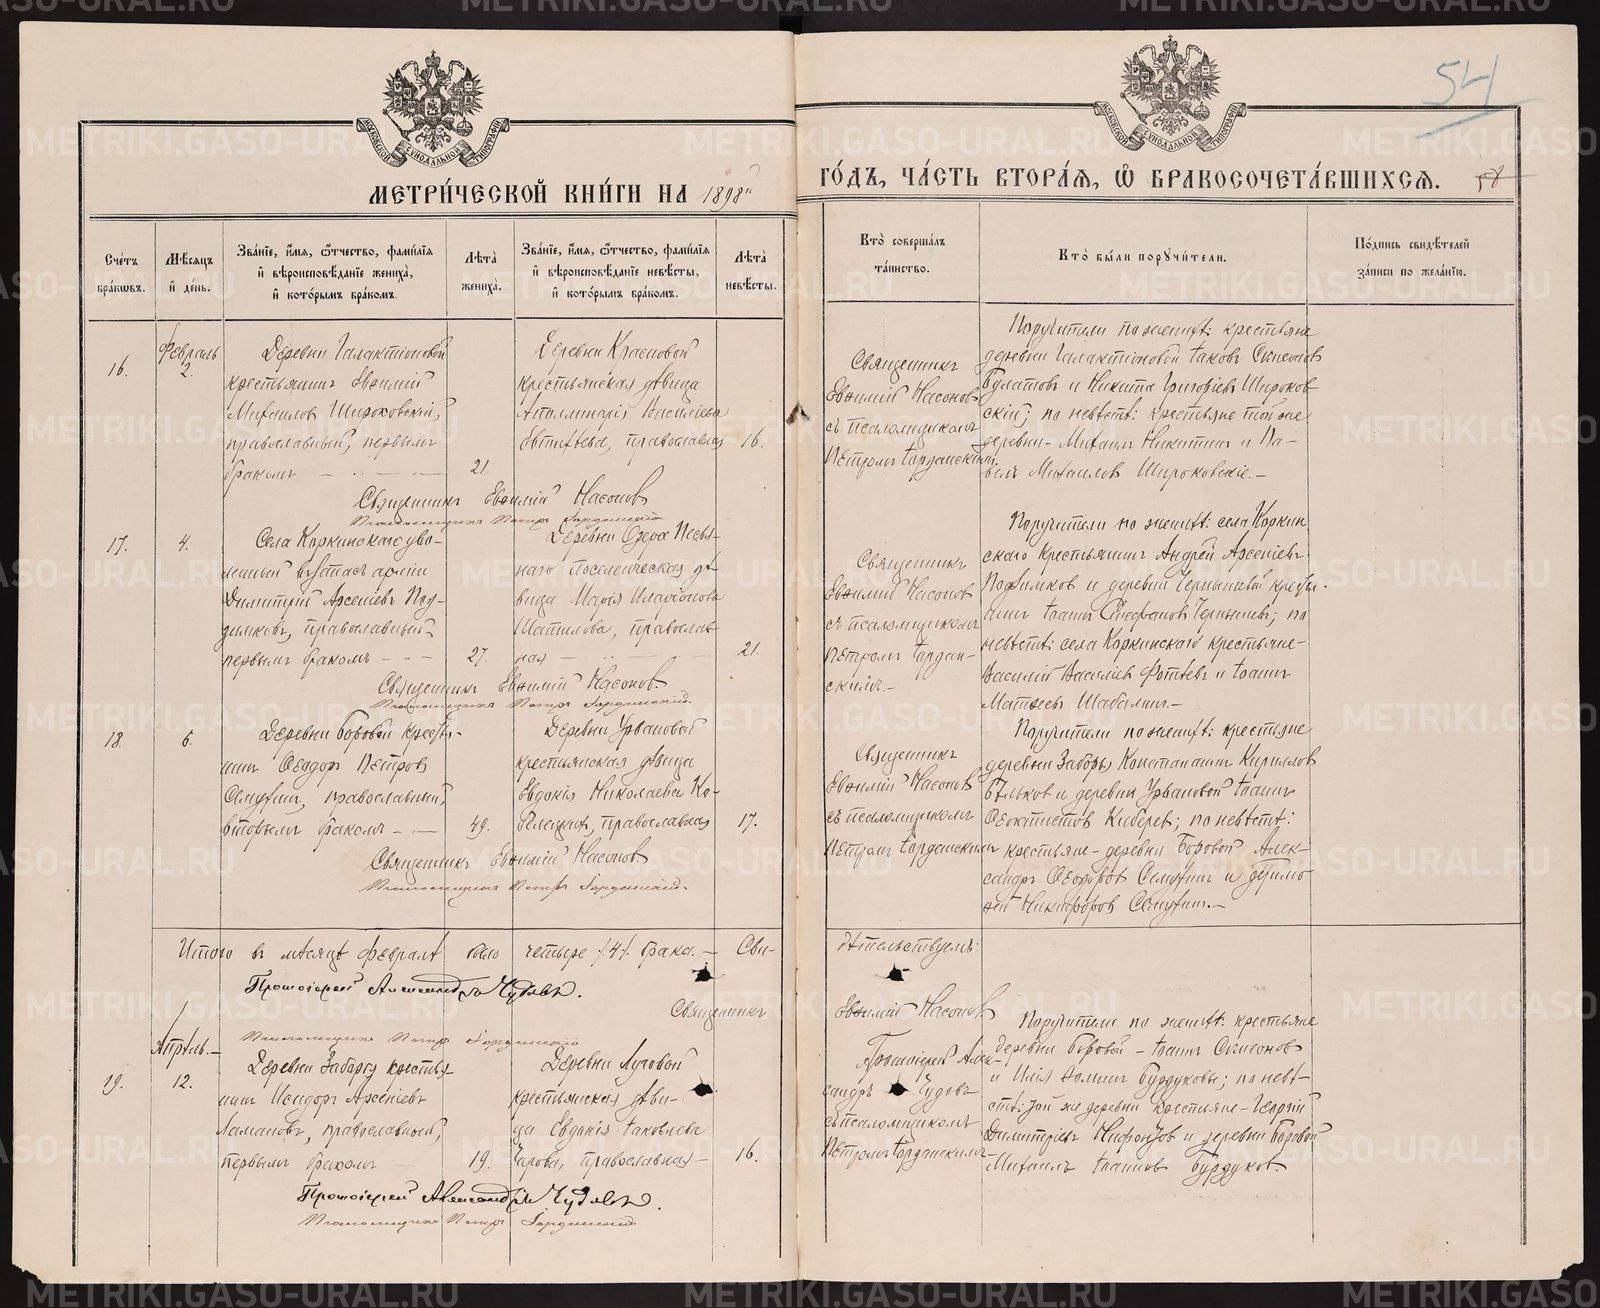 METRIKI.GASO-URAL.RU
54
МОСКОВСКОЙ СѴНОДАЛЬНОЙ ТИПОГРАФІИ
МОСКОВСКОЙ СѴНОДАЛЬНОЙ ТИПОГРАФІИ
МЕТРИ́ЧЕСКОЙ КНИ́ГИ НА 1898
ГО́ДЪ, ЧА́СТЬ ВТОРА́Я, Ѿ БРАКОСОЧЕТА́ВШИХСЯ.
58
Сче́тъ бра́кѡвъ.
Мѣ́сяцъ и҆ де́нь.
Зва́нїе, и҆́мя, ѻ҆́тчество, фамі́лїя и҆ вѣроисповѣ́данїе жениха̀, и҆ кото́рымъ бра́комъ.
Лѣта̀ жениха̀.
Зва́нїе, и҆́мя, ѻ҆́тчество, фамі́лїя и҆ вѣроисповѣ́данїе невѣ́сты, и҆ кото́рымъ бра́комъ.
Лѣта̀ невѣ́сты.
Кто̀ соверша́лъ та́инство.
Кто̀ бы́ли порꙋчи́тели.
По́дпись свидѣ́телей за́писи по жела́нїю.
16.
Февраль
2.
Деревни Галактіоновой
крестьянинъ Евѳимій
Михаиловъ Широковскій,
православный, первымъ
бракомъ
21.
Деревни Красновой
крестьянская дѣвица
Васильева
православная
16.
Священникъ
Евѳимій Насоновъ
съ псаломщикомъ
Петромъ Гордянскимъ
Поручители по женихѣ: крестьяне
деревни Галактіоновой Іаковъ Симеоновъ
Булатовъ и Никита Григорьевъ Широков-
скій; по невѣстѣ: крестьяне той же
деревни - Михаилъ Никитинъ и Па-
велъ Михаиловъ Широковскіе.
Священникъ Евѳимій Насоновъ
Псаломщикъ Петръ Гордянскій
17.
4.
Села Коркинскаго уво-
ленный въ запасъ арміи
Димитрій Арсеніевъ Под-
православный,
первымъ бракомъ
27.
Деревни Озера
поселенческая дѣ-
вица Марія Иларіонова
Шатилова, православ-
ная
21.
Священникъ
Евѳимій Насоновъ
съ псаломщикомъ
Петромъ Гордян-
скимъ.
Поручители по женихѣ: села Коркин-
скаго крестьянинъ Андрей Арсеніевъ
и деревни Чернышевой крестья-
нинъ Іоаннъ Стефановъ Чернышевъ; по
невѣстѣ: села Коркинскаго крестьяне-
Василій Васильевъ Фотѣевъ и Іоаннъ
Матѳеевъ Шабалинъ.
Священникъ Евѳимій Насоновъ.
Псаломщикъ Петръ Гордянскій.
18.
6.
Деревни Боровой крестья-
нинъ Ѳеодоръ Петровъ
православный,
вторымъ бракомъ
49.
Деревни Урвановой
крестьянская дѣвица
Евдокія Николаева Ко-
православная
17.
Священникъ
Евѳимій Насоновъ
съ псаломщикомъ
Петромъ Гордянскимъ
Поручители по женихѣ: крестьяне
деревни Заборы Константинъ Кирилловъ
Бѣльковъ и деревни Урвановой Іоаннъ
Ѳеоктистовъ Киберевъ; по невѣстѣ:
крестьяне - деревни Боровой Алек-
сандръ Ѳеодоровъ и
Никифоровъ
Священникъ Евѳимій Насоновъ
Псаломщикъ Петръ Гордянскій.
Итого въ мѣсяцѣ февралѣ было четыре /4/ брака. Сви-
дѣтельствуемъ:
Протоіерей Александръ Чудовъ.
Священникъ Евѳимій Насоновъ
Псаломщикъ Петръ Гордянскій
Апрѣль.
19.
12.
Деревни Заборы крестья-
нинъ Исидоръ Арсеніевъ
Ламановъ, православный,
первымъ бракомъ
19.
Деревни Луговой
крестьянская дѣви-
ца Евдокія Іаковлева
православная
16.
Протоіерей Алек-
сандръ Чудовъ
съ псаломщикомъ
Петромъ Гордянскимъ
Поручители по женихѣ: крестьяне
деревни Боровой - Іоаннъ Симеоновъ
и Илія Бурдуковы; по невѣ-
стѣ: той же деревни крестьяне - Георгій
Димитріевъ и деревни Боровой
Михаилъ Іоанновъ Бурдуковъ.
Протоіерей Александръ Чудовъ.
Псаломщикъ Петръ Гордянскій